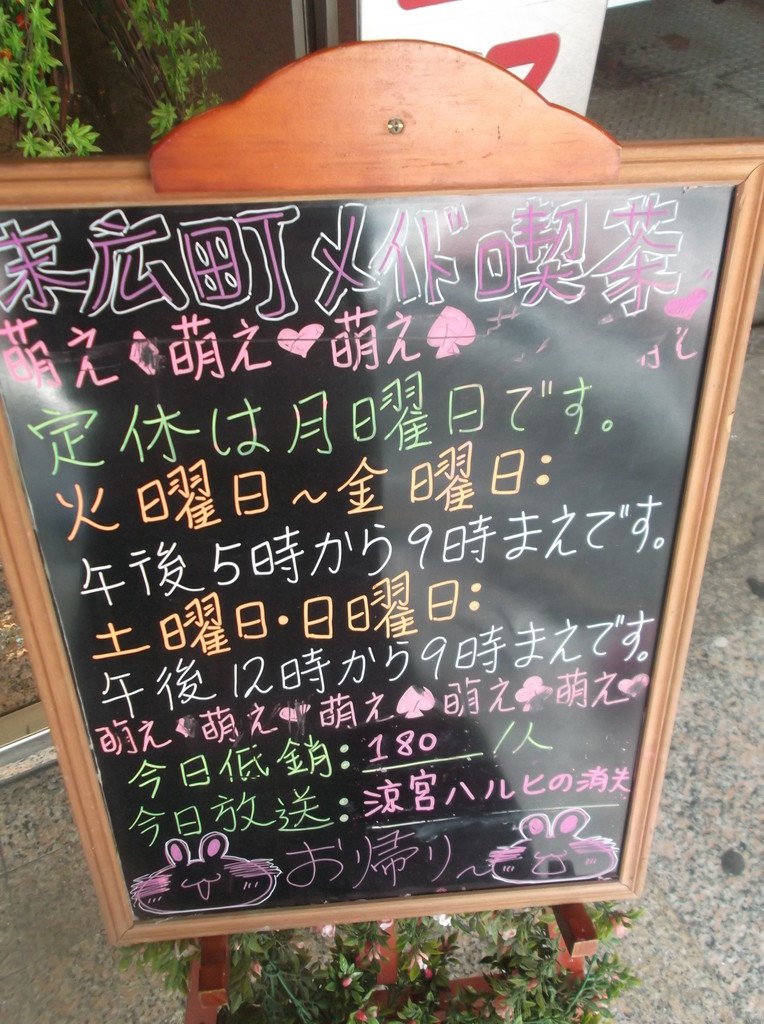 末広町メイド喫茶
萌え萌え萌え
定休は月曜日です。
火曜日～金曜日:
午後5時から9時まえです。
土曜日・日曜日:
午後12時から9時まえです。
萌え萌え萌え萌え萌え
今日低銷: 180 /人
今日放送: 涼宮ハルヒの消失
お帰り～